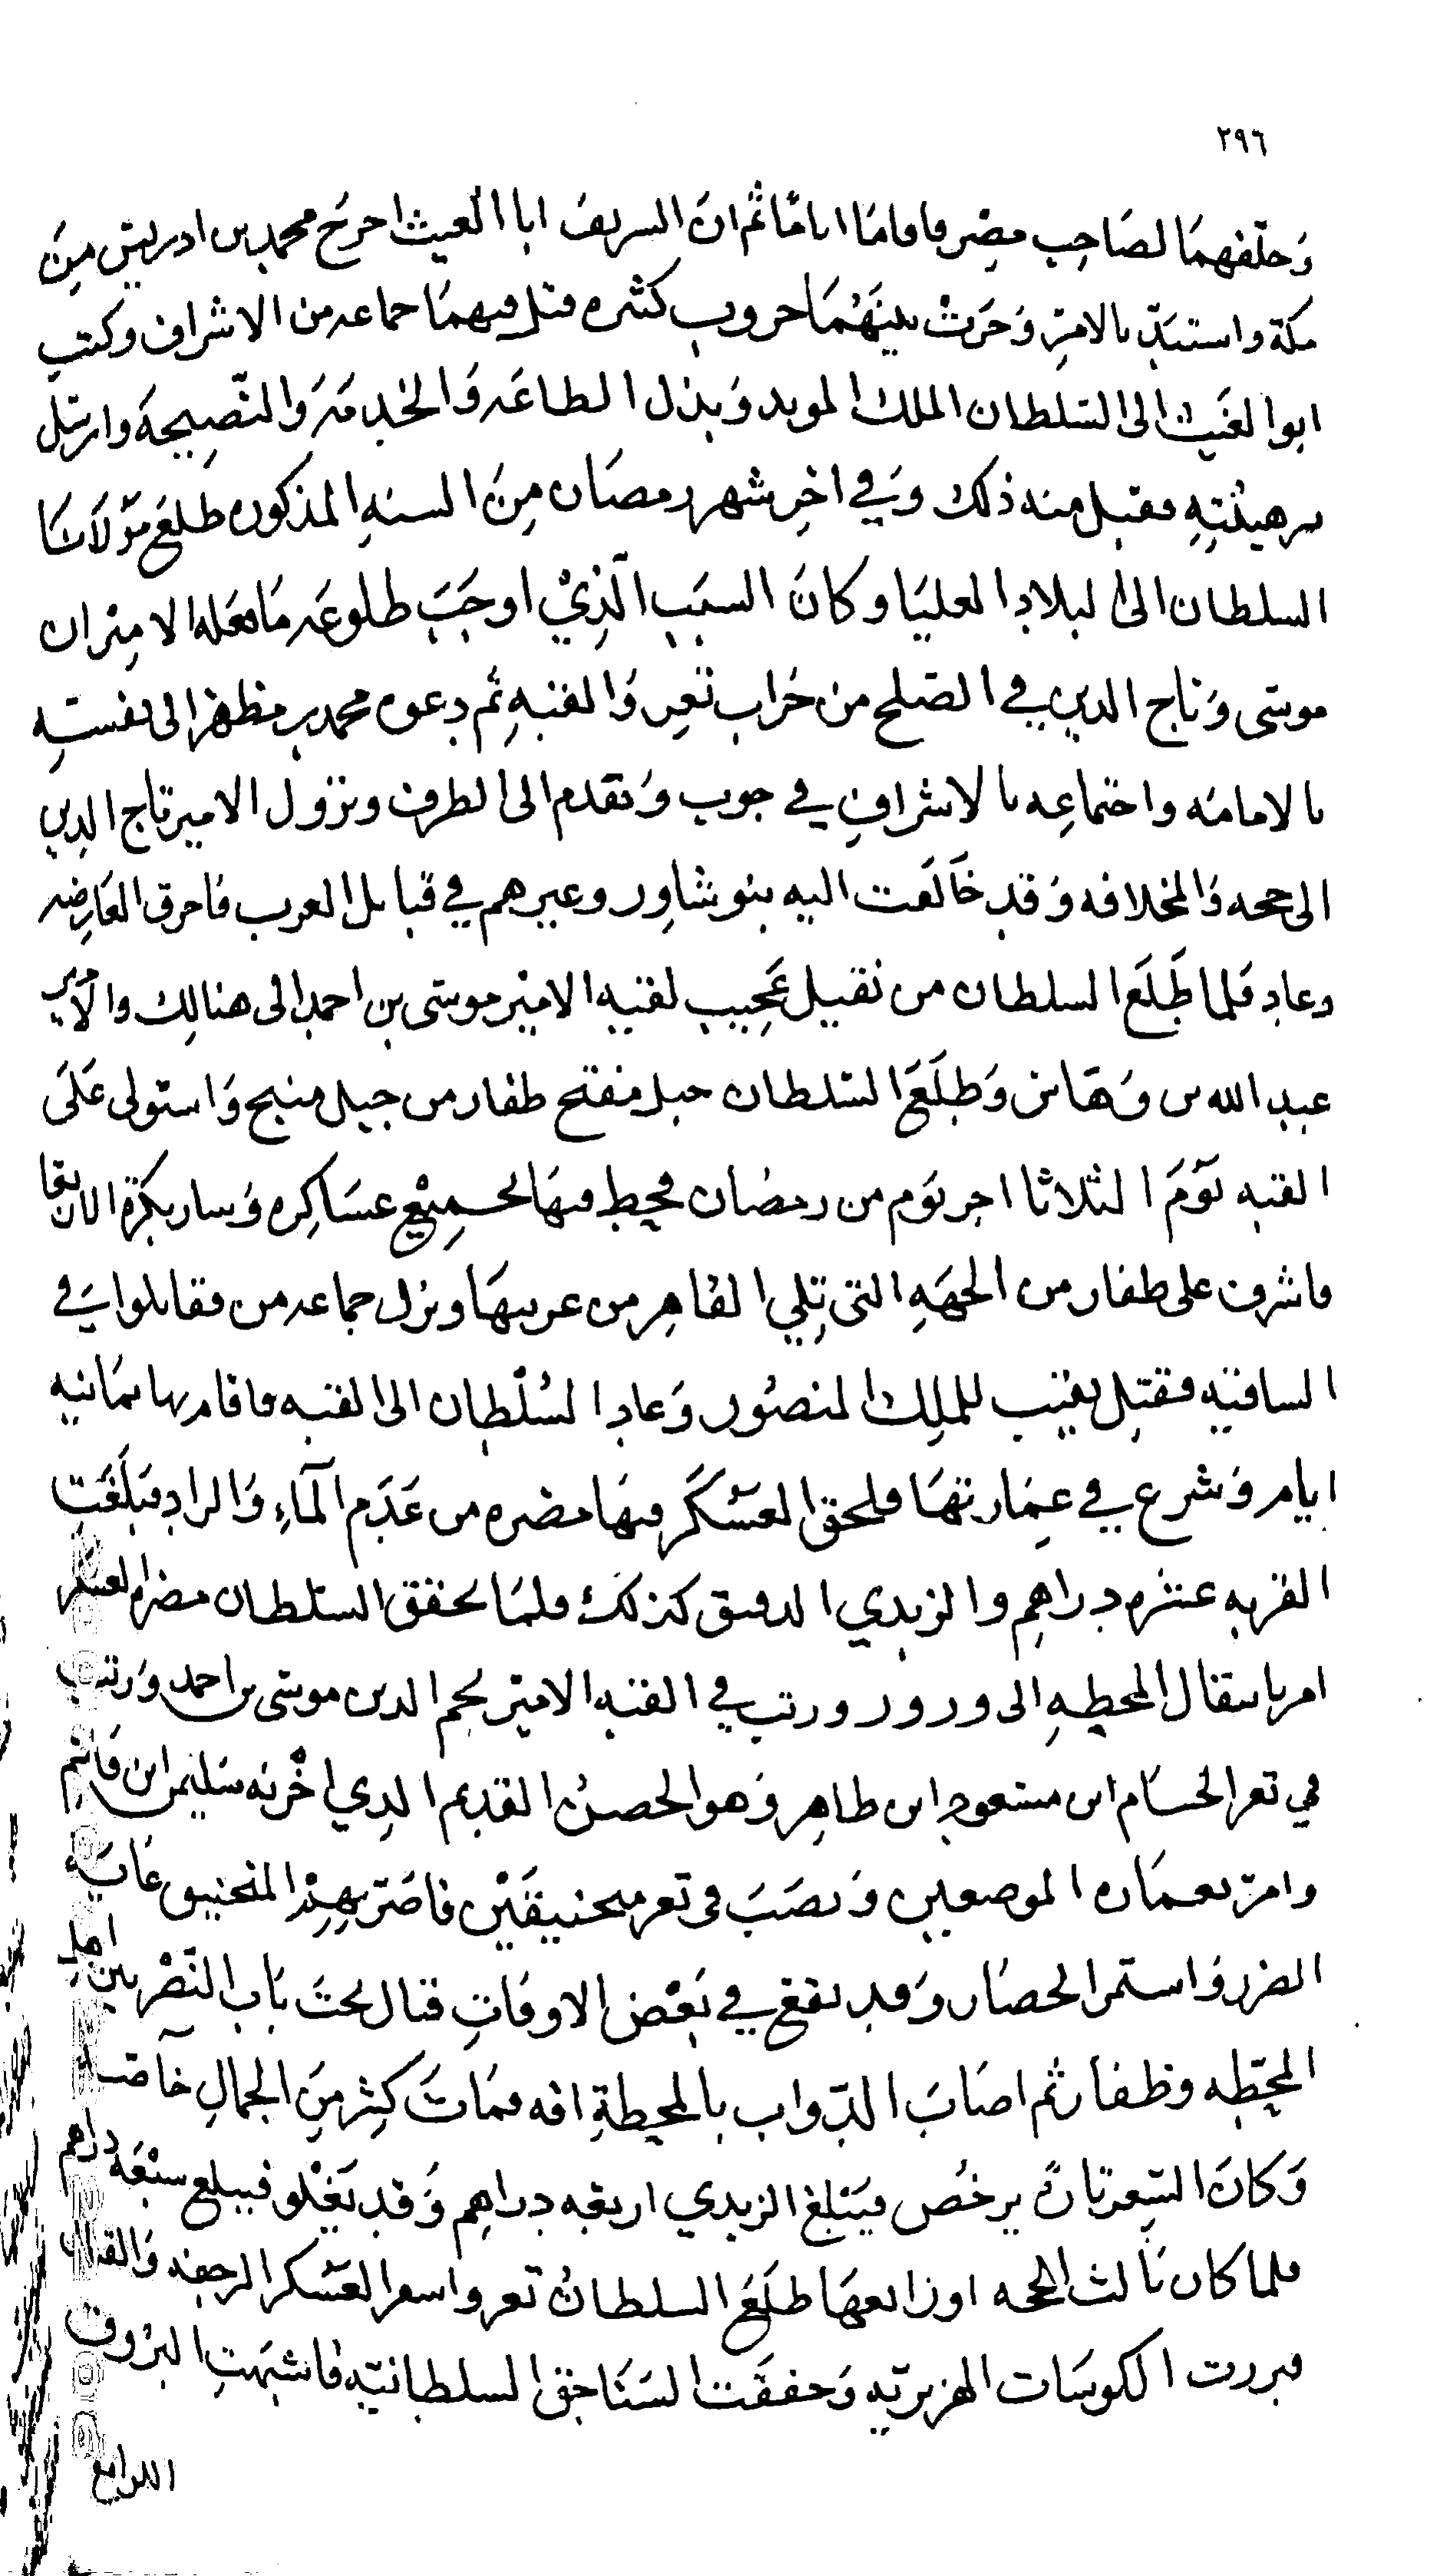 ٢٩٦
وحلفهما لصاحب مصر فاقاما اياما ثم ان الشريف ابا الغيث اخرج محمد بن ادريس من
مكة واستبد بالامر وجرت بينهما حروب كثيره قتل فيهما جماعه من الاشراف وكتب
ابوالغيث الى السلطان الملك المويد وبذل الطاعه والخدمه والنصيحه وارسل
برهينته فقبل منه ذلك وفي اخر شهر رمضان من السنه المذكوره طلع مولانا
السلطان الى البلاد العليا وكان السبب الذي اوجب طلوعه ما فعله الاميران
موسى وتاج الدين في الصلح من خراب تعز والقنه ثم دعوه محمد بن مظهر الى نفسه
بالامامه واجتماعه بالاشراف في حوب وتقدم الى الطرف ونزول الامير تاج الدين
الى حجه والمخلافه وقد خالفت اليه بنو شاور وغيرهم في قبايل العرب فاحرق العارضه
وعاد فلما طلع السلطان من نقيل عجيب لقيه الامير موسى بن احمد الى هنالك والامير
عبد الله بن وهاس وطلع السلطان جبل مفتح ظفار من جبل منبح واستولى على
القنه يوم الثلاثا اخر يوم من رمضان فحط فيها بجميع عساكره وسار بكرة الاربعا
فاشرف على ظفار من الجهه التي تلي القاهر من غربيها ونزل جماعه من فقاتلوا في
الساقيه فقتل نقيب للملك المنصور وعاد السلطان الى القنه فاقام بها ثمانيه
ايام وشرع في عمارتها فلحق العسكر فيها مضره من عدم الماء والزاد فبلغت
القربه عشره دراهم والزبدي الدقيق كذلك فلما تحقق السلطان مضره العسكر
امر بانتقال المحطه الى ورور ورتب في القنه الامير نجم الدين موسى بن احمد ورتب
في تعز الحسام ابن مسعود ابن طاهر وهو الحصن القديم الذي اخربه سليمن ابن قاسم
وامر بعماره الموضعين ونصب في تعز منجنيقين فاضر بهذا المنجنيق غايه
الضرر واستمر الحصار وقد يقع في بعض الاوقات قتال تحت باب النصر بين اهل
المحطه وظفار ثم اصاب الدواب بالمحطة افه فمات كثير من الجمال خاصه
وكان السعر تارة يرخص فيبلغ الزبدي اربعه دراهم وقد يغلو فيبلغ سبعه دراهم
فلما كان ثالث الحجه او رابعها طلع السلطان تعز واسعر العسكر الرجفه والقتال
فبررت الكوسات الهزبريه وخفقت السناجق السلطانيه فاشبهت البروق
اللوامع